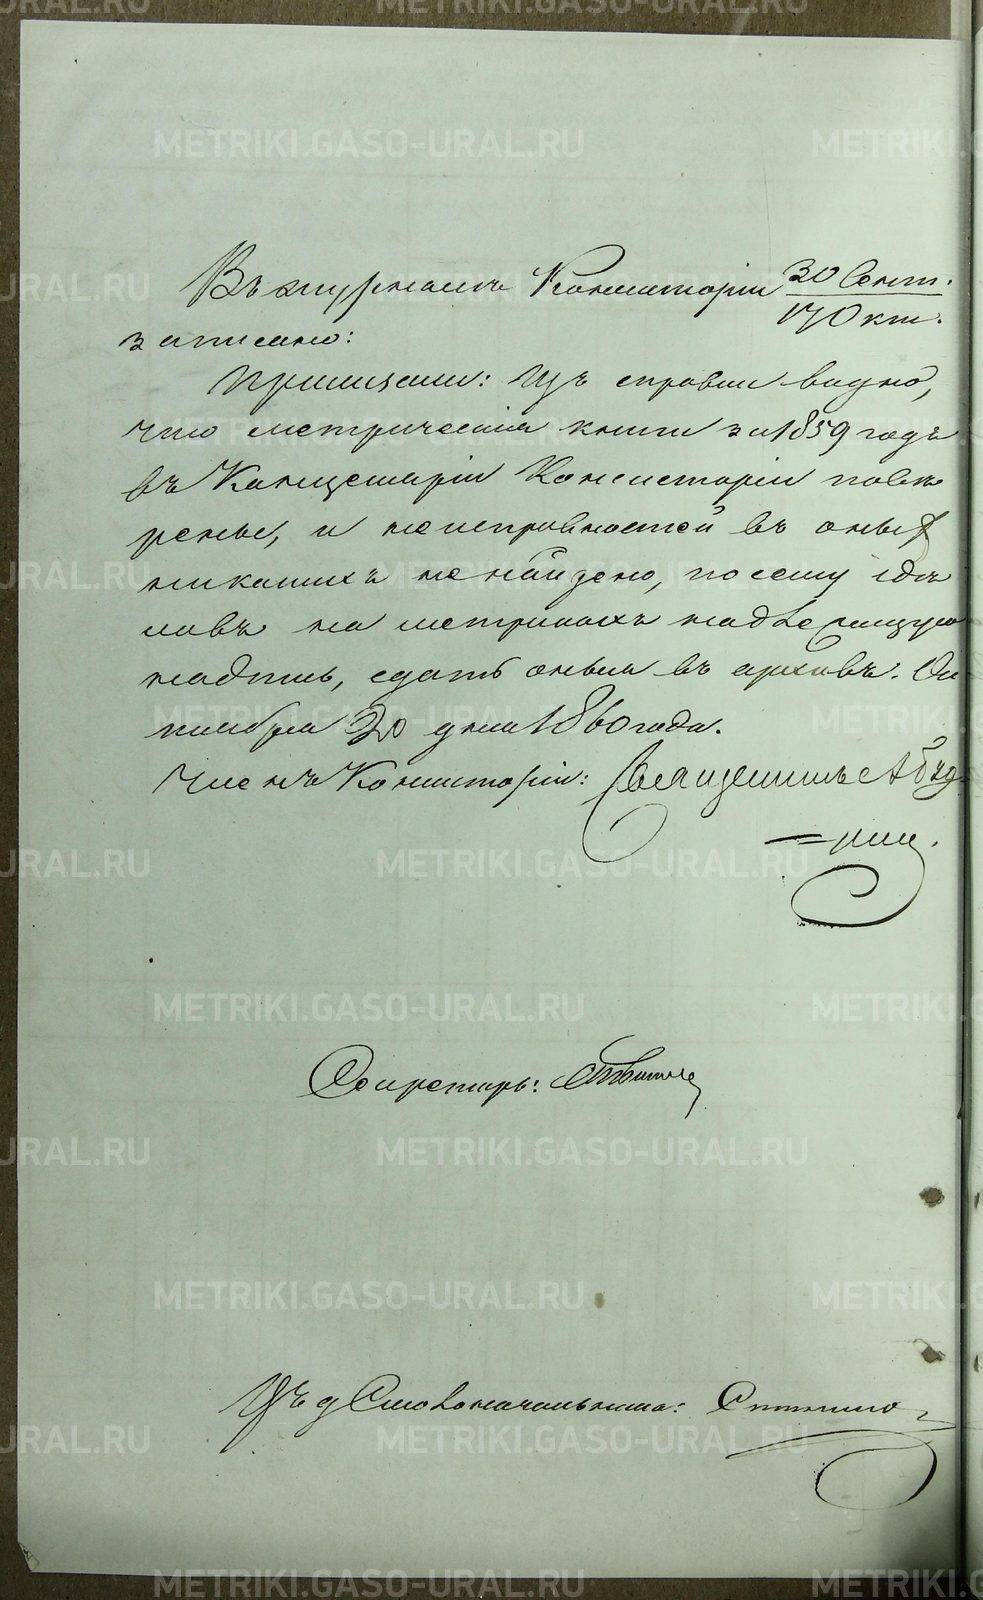 Въ журналѣ Консисторіи 30 Сент.
17 Окт.
записано:
Приказали: Изъ справки видно,
что метрическія книги за 1859 годъ
въ Канцеляріи Консисторіи повѣ
рены, и неисправностей въ оныхъ
никакихъ не найдено, по сему сдѣ
лавъ на метрикахъ надлежащую
надпись, сдать оныя въ архивъ. Ок
тября 20 дня 1860 года.
Членъ Консисторіи: Священникъ
Секретарь:
Столоначальника:
METRIKI.GASO-URAL.RU